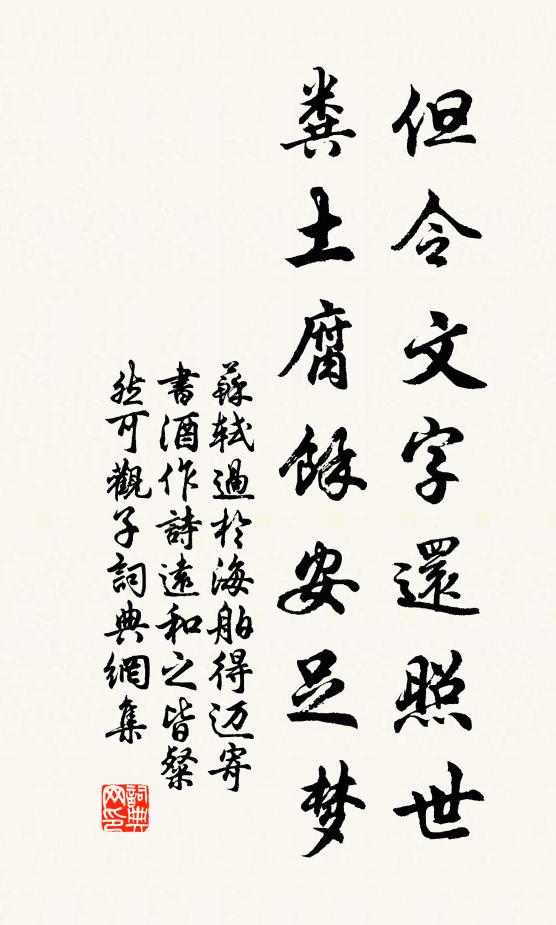 但令文字還照世
糞土腐餘安足梦
蘇軾過於海舶得迈寄
書酒作詩遠和之皆粲
然可觀子詞典網集
詞典
网印